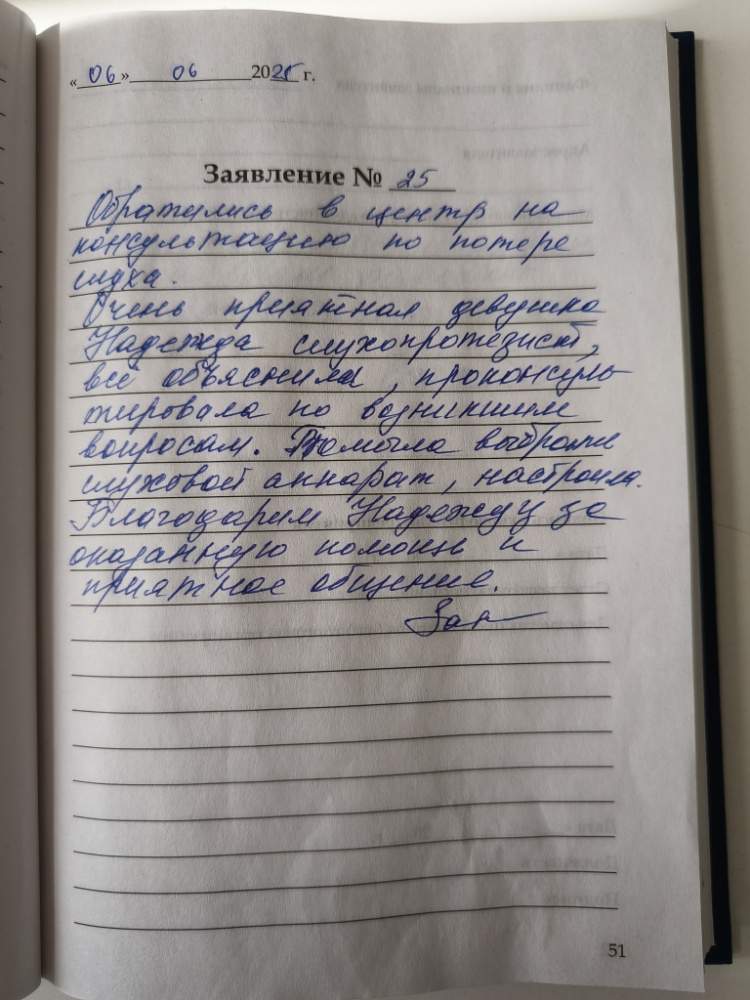 «06» 06 2025 г.
Заявление № 25
Обратились в центр на
консультацию по потере
слуха.
Очень приятная девушка
Надежда слухопротезист,
всё объяснила, проконсуль
тировала по возникшим
вопросам. Помогла выбрать
слуховой аппарат, настроила.
Благодарим Надежду за
оказанную помощь и
приятное общение.
51